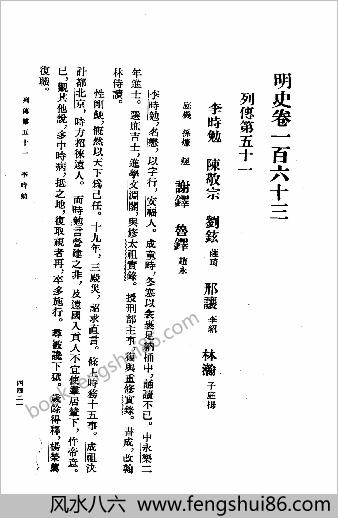 明史卷一百六十三
列傳第五十一
李時勉 陳敬宗 劉鉉 薩琦 邢讓 李紹 林瀚 子庭㭿
庭機 孫燫 烴 謝鐸 魯鐸 趙永
李時勉,名懋,以字行,安福人。成童時,冬寒以衾裹足納桶中,誦讀不已。中永樂二
年進士。選庶吉士,進學文淵閣,與修太祖實錄。授刑部主事,復與重修實錄。書成,改翰
林侍讀。
性剛鯁,慨然以天下爲己任。十九年,三殿災,詔求直言。條上時務十五事。成祖決
計都北京,時方招徠遠人。而時勉言營建之非,及遠國入貢人不宜使羣居輦下,忤帝意。
已,觀其他說,多中時病,抵之地,復取視者再,卒多施行。尋被讒下獄。歲餘得釋,楊榮薦
復職。
列傳第五十一 李時勉
四四二一
bookfengshui86.com
风水八六 www.fengshui86.com